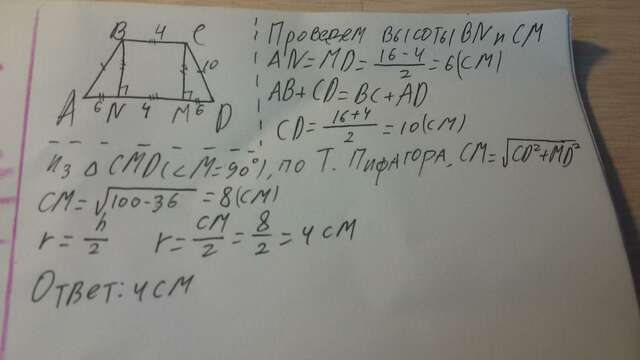 B 4 C
10
A 6 N 4 M 6 D
Проведем высоты BN и CM
AN = MD = \frac{16-4}{2} = 6 (см)
AB + CD = BC + AD
CD = \frac{16+4}{2} = 10 (см)
Из △ CMD (∠M = 90°), по Т. Пифагора, CM = √CD² + MD²
CM = √100-36 = 8 (см)
r = \frac{h}{2} r = \frac{CM}{2} = \frac{8}{2} = 4 см
Ответ: 4 см